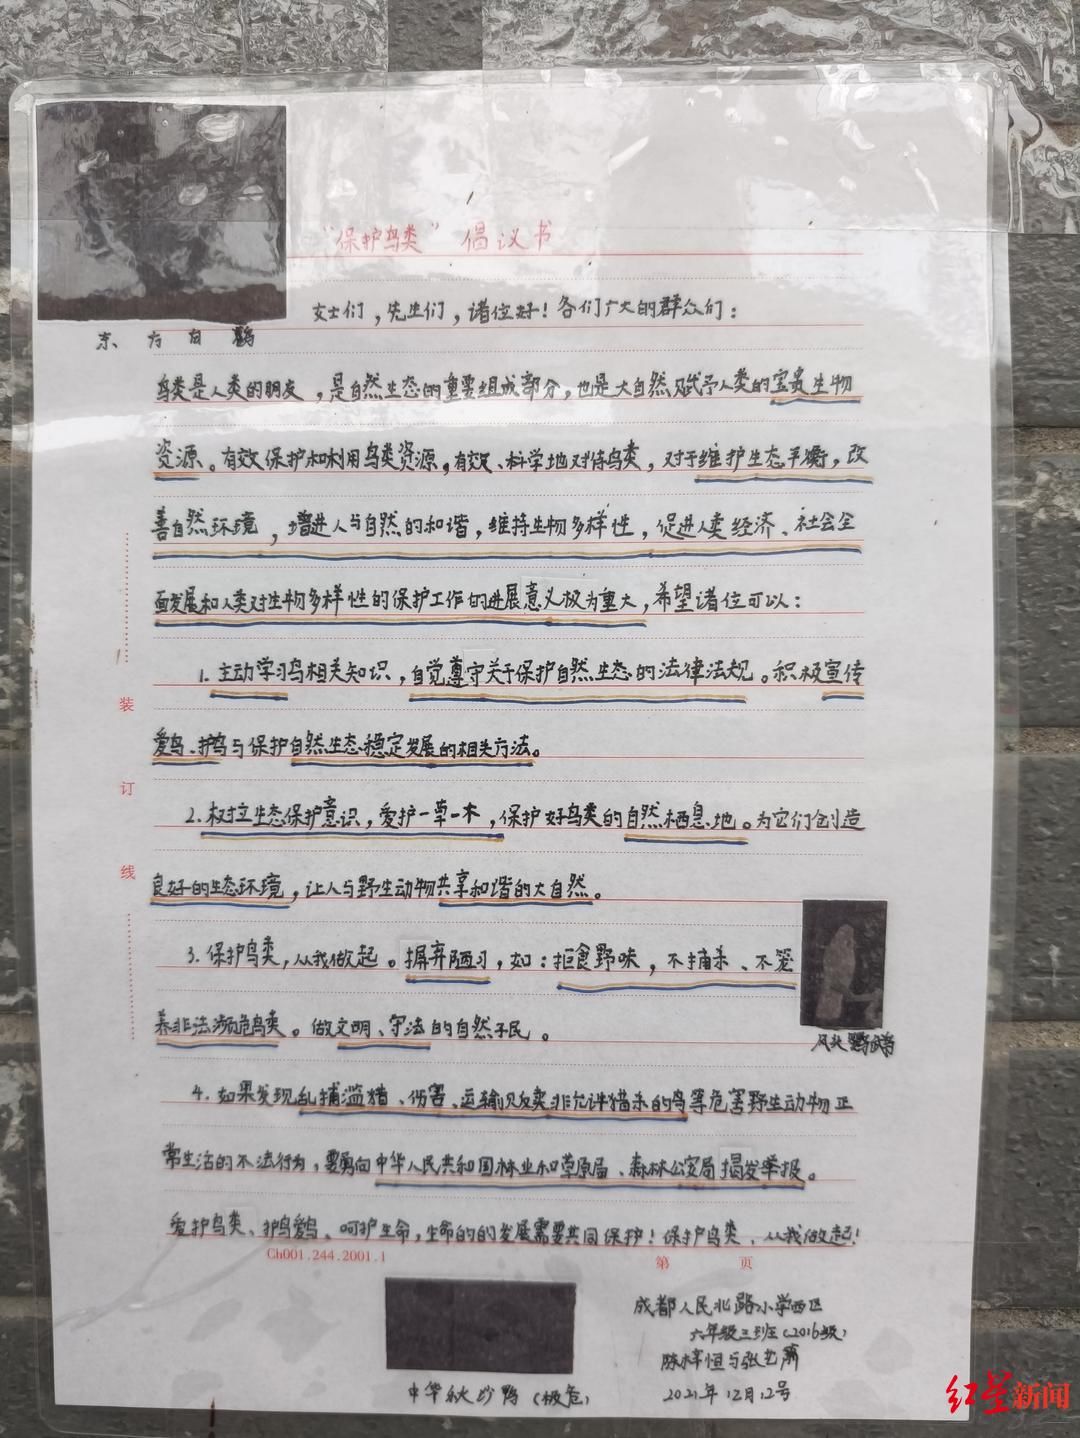 “保护鸟类”倡议书
女士们，先生们，诸位好！各们广大的群众们：
东方白鹳
鸟类是人类的朋友，是自然生态的重要组成部分，也是大自然赋予人类的宝贵生物
资源。有效保护和利用鸟类资源，有效、科学地对待鸟类，对于维护生态平衡，改
善自然环境，增进人与自然的和谐，维持生物多样性，促进人类经济、社会全
面发展和人类对生物多样性的保护工作的进展意义极为重大，希望诸位可以：
1. 主动学习鸟相关知识，自觉遵守关于保护自然生态的法律法规。积极宣传
爱鸟、护鸟与保护自然生态稳定发展的相关方法。
2. 树立生态保护意识，爱护一草一木，保护好鸟类的自然栖息地。为它们创造
良好的生态环境，让人与野生动物共享和谐的大自然。
3. 保护鸟类，从我做起。摒弃陋习，如：拒食野味，不捕杀、不笼
养非法濒危鸟类。做文明、守法的自然子民。
凤头鹦鹉
4. 如果发现乱捕滥猎、伤害、运输贩卖非允许猎杀的鸟等危害野生动物正
常生活的不法行为，要勇向中华人民共和国林业和草原局、森林公安局揭发举报。
爱护鸟类、护鸟爱鸟、呵护生命，生命的的发展需要共同保护！保护鸟类、从我做起！
装
订
线
Ch001.244.2001.1
第 页
成都人民北路小学西区
六年级三班（2016级）
恒与张艺
2021年12月12号
中华秋沙鸭（极危）
红星新闻